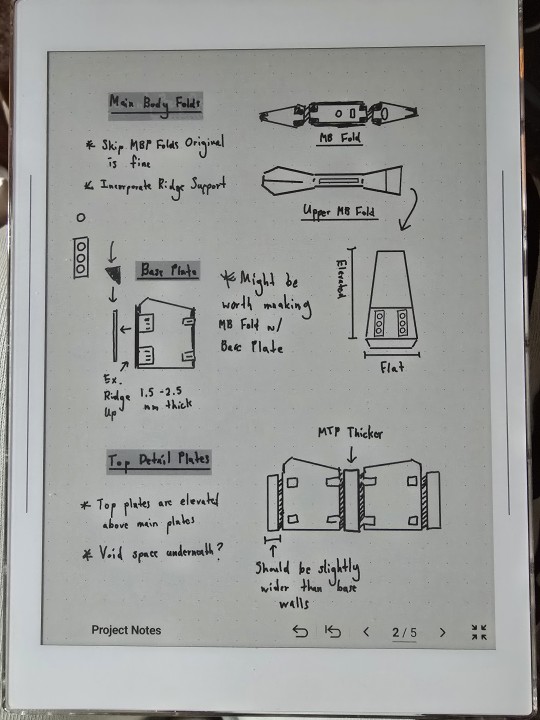 Main Body Folds
* Skip MBP Folds Original
is fine
* Incorporate Ridge Support
MB Fold
Upper MB Fold
Base Plate
* Might be
worth making
MB Fold w/
Base Plate
Elevated
Flat
Ex.
Ridge
Up
1.5 -2.5
mm thick
Top Detail Plates
* Top plates are elevated
above main plates
* Void space underneath?
MTP Thicker
Should be slightly
wider than base
walls
Project Notes
2 / 5